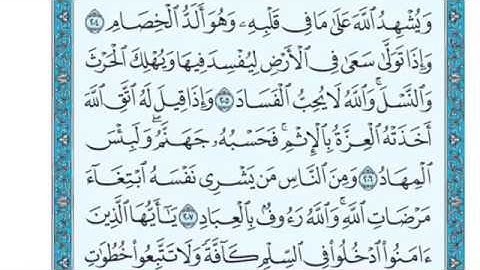 وَيُشْهِدُ ٱللَّهَ عَلَىٰ مَا فِى قَلْبِهِۦ وَهُوَ أَلَدُّ ٱلْخِصَامِ ٢٠٤
وَإِذَا تَوَلَّىٰ سَعَىٰ فِى ٱلْأَرْضِ لِيُفْسِدَ فِيهَا وَيُهْلِكَ ٱلْحَرْثَ
وَٱلنَّسْلَ ۗ وَٱللَّهُ لَا يُحِبُّ ٱلْفَسَادَ ٢٠٥ وَإِذَا قِيلَ لَهُ ٱتَّقِ ٱللَّهَ
أَخَذَتْهُ ٱلْعِزَّةُ بِٱلْإِثْمِ ۚ فَحَسْبُهُۥ جَهَنَّمُ ۖ وَلَبِئْسَ
ٱلْمِهَادُ ٢٠٦ وَمِنَ ٱلنَّاسِ مَن يَشْرِى نَفْسَهُ ٱبْتِغَآءَ
مَرْضَاتِ ٱللَّهِ ۗ وَٱللَّهُ رَءُوفٌۢ بِٱلْعِبَادِ ٢٠٧ يَـٰٓأَيُّهَا ٱلَّذِينَ
ءَامَنُوا۟ ٱدْخُلُوا۟ فِى ٱلسِّلْمِ كَآفَّةً وَلَا تَتَّبِعُوا۟ خُطُوَٰتِ